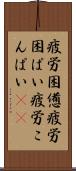 疲労困憊疲労
困ぱい疲労こ
んぱい